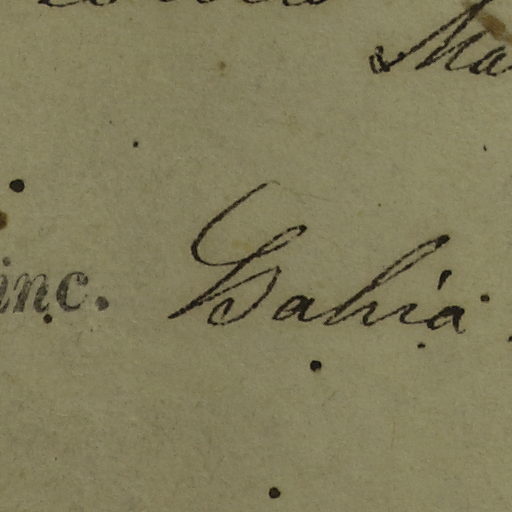 Ma
inc. Bahia